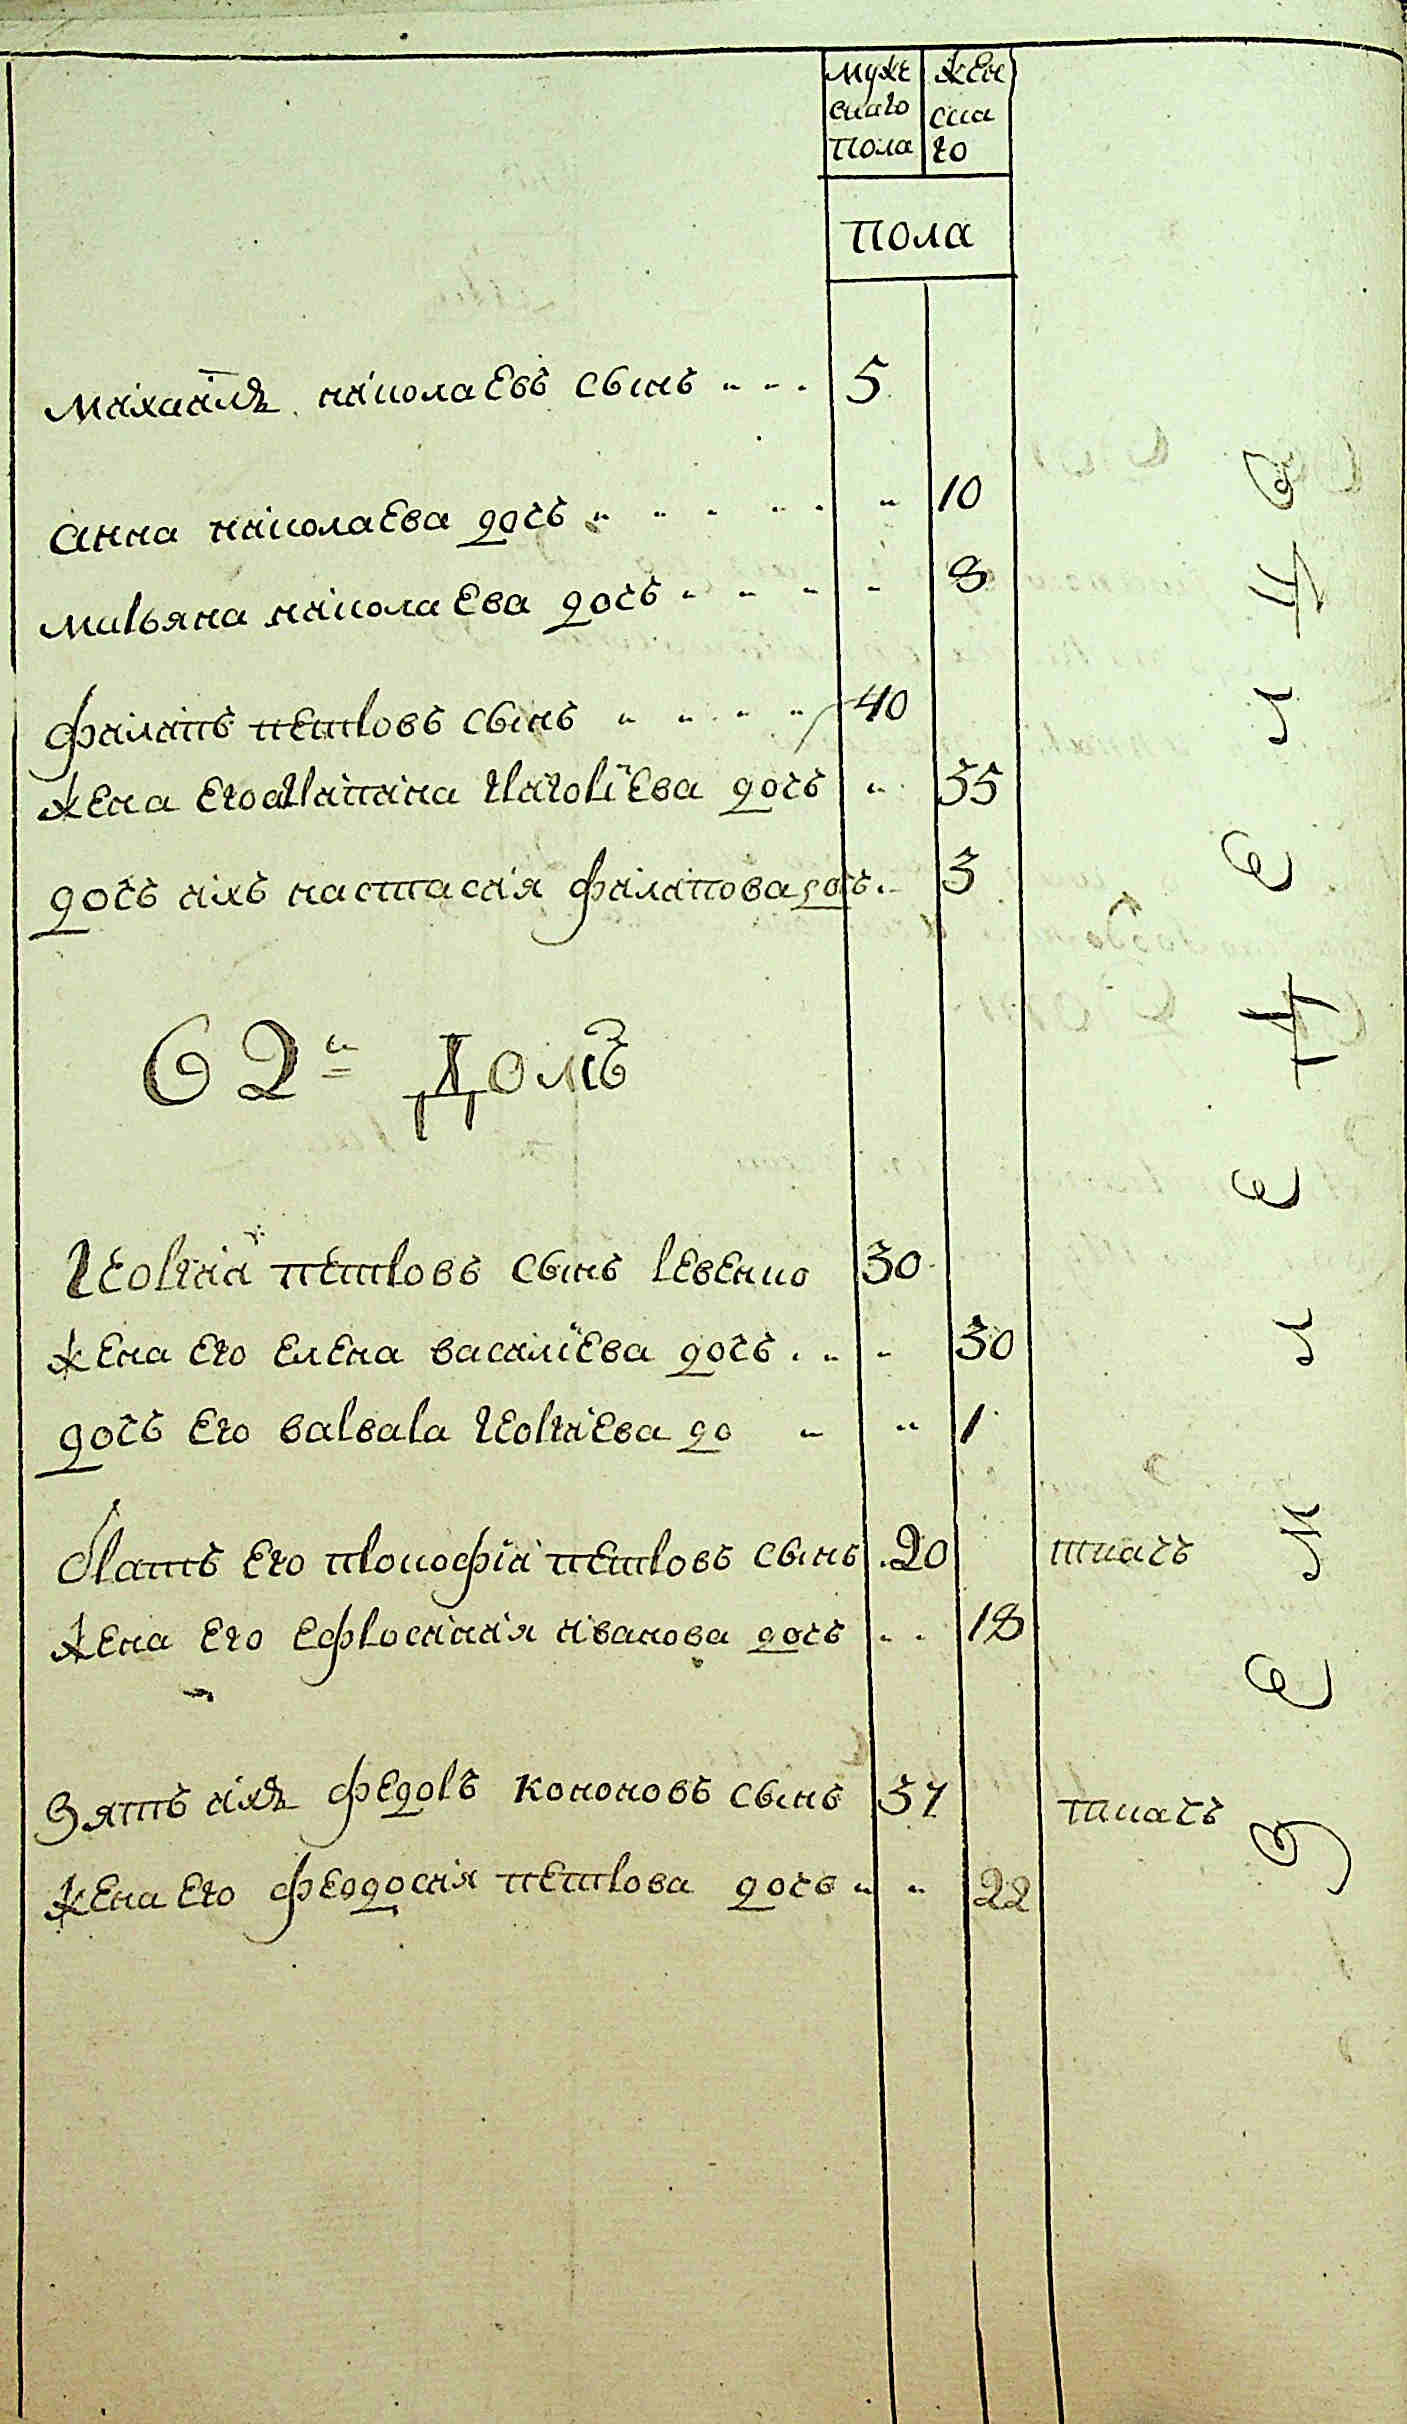 мужескаго пола
женскаго
пола
михаилъ николаевъ сынъ 5
анна николаева дочь 10
мирьяна николаева дочь 8
филипъ петровъ сынъ 40
жена его агрипина григориева дочь 35
дочь ихъ настасия филипова дочь 3
62й Домъ
георгий петровъ сынъ ревенко 30
жена его елена василиева дочь 30
дочь его варвара георгиева до 1
братъ его прокофий петровъ сынъ 20 ткачь
жена его ефросиния иванова дочь 18
Зять ихъ федоръ кононовъ сынъ 37 ткачь
жена его феодосия петрова дочь 22